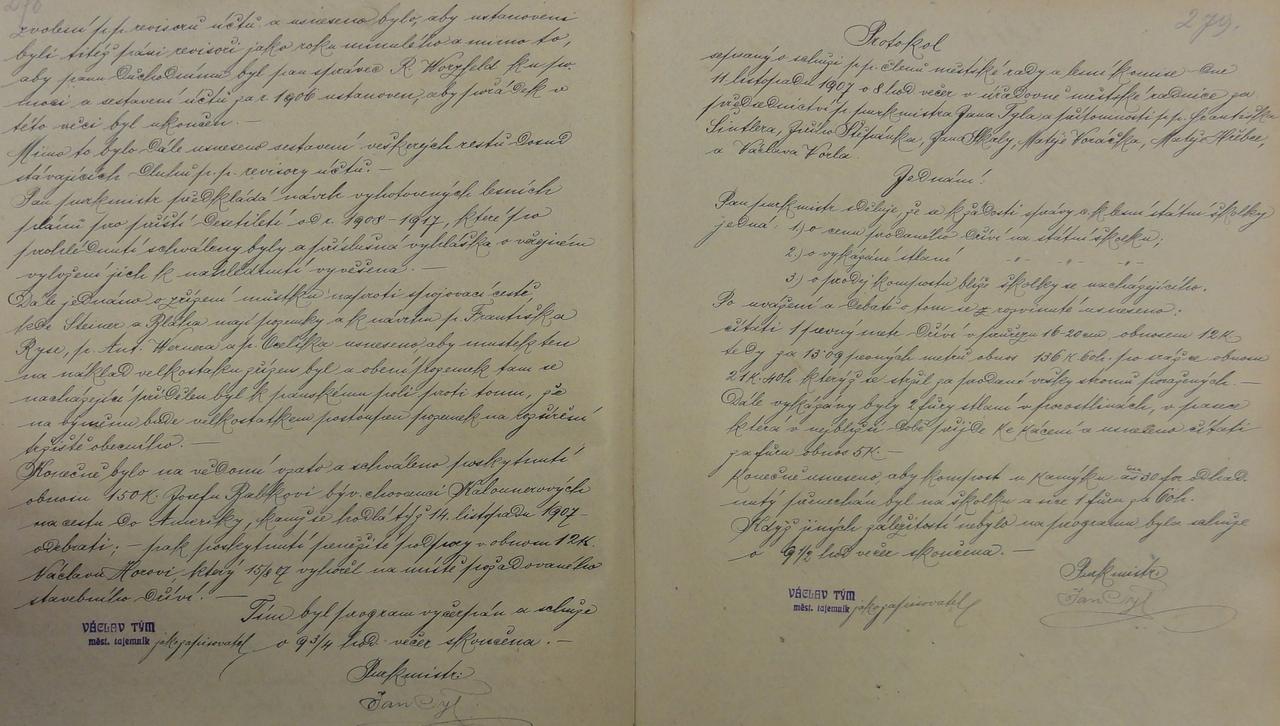 zvolení p.p. revisorů účtů a usneseno bylo, aby ustanoveni
byli titíž páni revisoři jako roku minulého a mimo to,
aby panu důchodnímu byl pan správce R. Worzfeld ku po-
moci a sestavení účtů za r. 1906 ustanoven, aby pořádek v
této věci byl ukončen. —
Mimo to bylo dále usneseno sestavení veškerých restů dosud
stávajících dluhů p.p. revisory účtů. —
Pan purkmistr předkládá návrh vyhotovených lesních
plánů pro příští desítiletí od r. 1908–1917, které po
prohlédnutí schváleny byly a příslušná vyhláška o veřejném
vyložení jich k nahlédnutí vyvěšena. —
Dále jednáno o zřízení můstku naproti spojovací cestě,
kde Steiner a Bláha mají pozemky a k návrhu p. Františka
Ryse, p. Ant. Wernera a p. usneseno, aby mustek ten
na náklad velkostatku zřízen byl a obecní pozemek tam se
nacházející přidělen byl k panskému poli proti tomu, že
na výměnu bude velkostatkem postoupen pozemek na rozšíření
tržiště obecního. —
Konečně bylo na vědomí vzato a schváleno poskytnutí
obnosu 150 K. Josefu býv. chovanci Kalounerových
na cestu do Ameriky, kamž se hodlá týž 14. listopadu 1907
odebrati; — pak poskytnutí peněžité podpory v obnosu 12 K
Václavu Horovi, který 15/8 07 vyhořel na místě požadovaného
stavebního dříví. —
Tím byl program vyčerpán a schůze
o 9 3/4 hod. večer skončena. —
VÁCLAV TÝM
měst. tajemník
jako zapisovatel
Purkmistr:
Jan Tyl
279.
Protokol
sepsaný o schůzi p.p. členů městské rady a lesní komise dne
11 listopadu 1907 o 8 hod večer v úřadovně městské radnice za
předsednictví p. purkmistra Jana Tyla a přítomnosti p.p. Františka
Šintlera, Jiřího Štěpánka, Jana Škaly, Matěje Voráčka, Matěje
a Václava Vorla.
Jednání:
Pan purkmistr sděluje, že a k žádosti správy c. k. lesní státní školky
jedná: 1) o cenu prodaného dříví na státní školku;
2.) o vykázání stlaní " " "
3.) o prodej kompostu blíže školky se nacházejícího.
Po uvážení a debatě o tom se rozvinuté usneseno:
čítati 1 pevný metr dříví v průřezu 16-20 cm obnosem 12 K
tedy za 13·09 pevných metrů obnos 136 K. 60 h. po srážce obnosu
21 K. 40 h. který se stržil za prodané vršky stromů poražených. —
Dále vykázány byly 2 fůry stlaní v porostlinách, v pasece
která v nejbližší době přijde ke kácení a usneseno čítati
za fůru obnos 5 K. —
Konečně usneseno, aby kompost u Kamýku asi 30 for obnad-
nutý ponechán byl na školku a sice 1 fůru za 60 h.
Když jiných záležitostí nebylo na programu byla schůze
o 9 1/2 hod večer skončena. —
Purkmistr:
VÁCLAV TÝM
měst. tajemník
jako zapisovatel
Jan Tyl